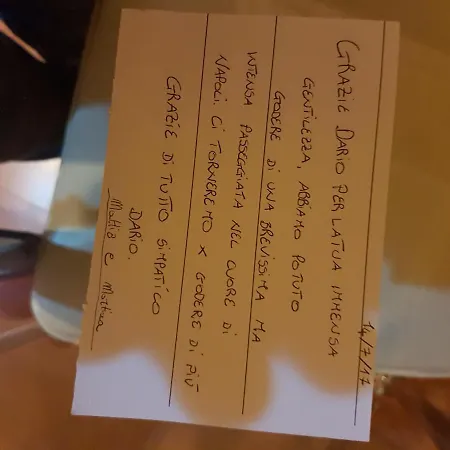 14/7/17
GRAZIE DARIO PER LA TUA IMMENSA
GENTILEZZA, ABBIAMO POTUTO
GODERE DI UNA BREVISSIMA MA
INTENSA PASSEGGIATA NEL CUORE DI
NAPOLI. CI TORNEREMO X GODERE DI PIÙ
GRAZIE DI TUTTO SIMPATICO
DARIO.
Mattia e Martina